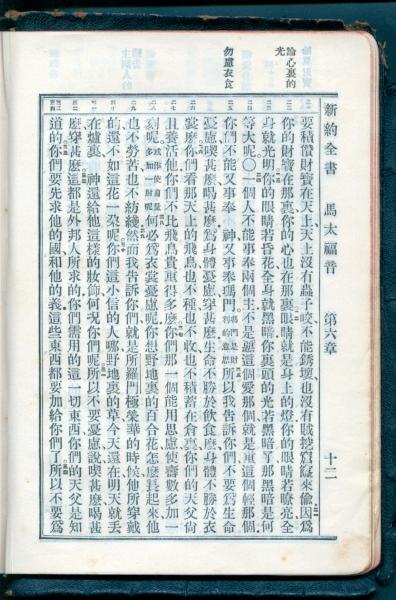 新約全書 馬太福音 第六章 十二
論心裏的光
勿慮衣食
要積儧財寶在天上天上沒有蟲子咬不能銹壞也沒有賊挖窟窿來偷因爲
你的財寶在那裏你的心也在那裏眼睛就是身上的燈你的眼睛若瞭亮全
身就光明你的眼睛若昏花全身就黑暗你裏頭的光若黑暗了那黑暗是何
等大呢○一個人不能事奉兩個主不是惡這個愛那個就是重這個輕那個
你們不能又事奉 神又事奉瑪門瑪門是財利的意思所以我告訴你們不要爲生命
憂慮喫甚麼喝甚麼爲身體憂慮穿甚麼生命不勝於飲食麼身體不勝於衣
裳麼你們看那天上的飛鳥也不種也不收也不積蓄在倉裏你們的天父尙
且養活他你們不比飛鳥貴重得多麼你們那一個能用思慮使壽數多加一
刻呢或作使身量多加一肘呢何必爲衣裳憂慮呢你想野地裏的百合花怎麼長起來他
也不勞苦也不紡綫然而我告訴你們就是所羅門極榮華的時候他所穿戴
的還不如這花一朶呢你們這小信的人哪野地裏的草今天還在明天就丟
在爐裏 神還給他這樣的妝飾何况你們呢所以不要憂慮說喫甚麼喝甚
麼穿甚麼這都是外邦人所求的你們需用的這一切東西你們的天父是知
道的你們要先求他的國和他的義這些東西都要加給你們了所以不要爲